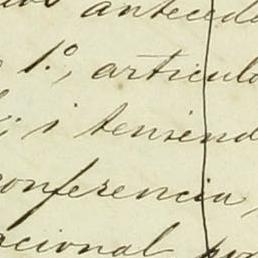 antecede
1.º, articulo
; i teniend
conferencia,
acional por